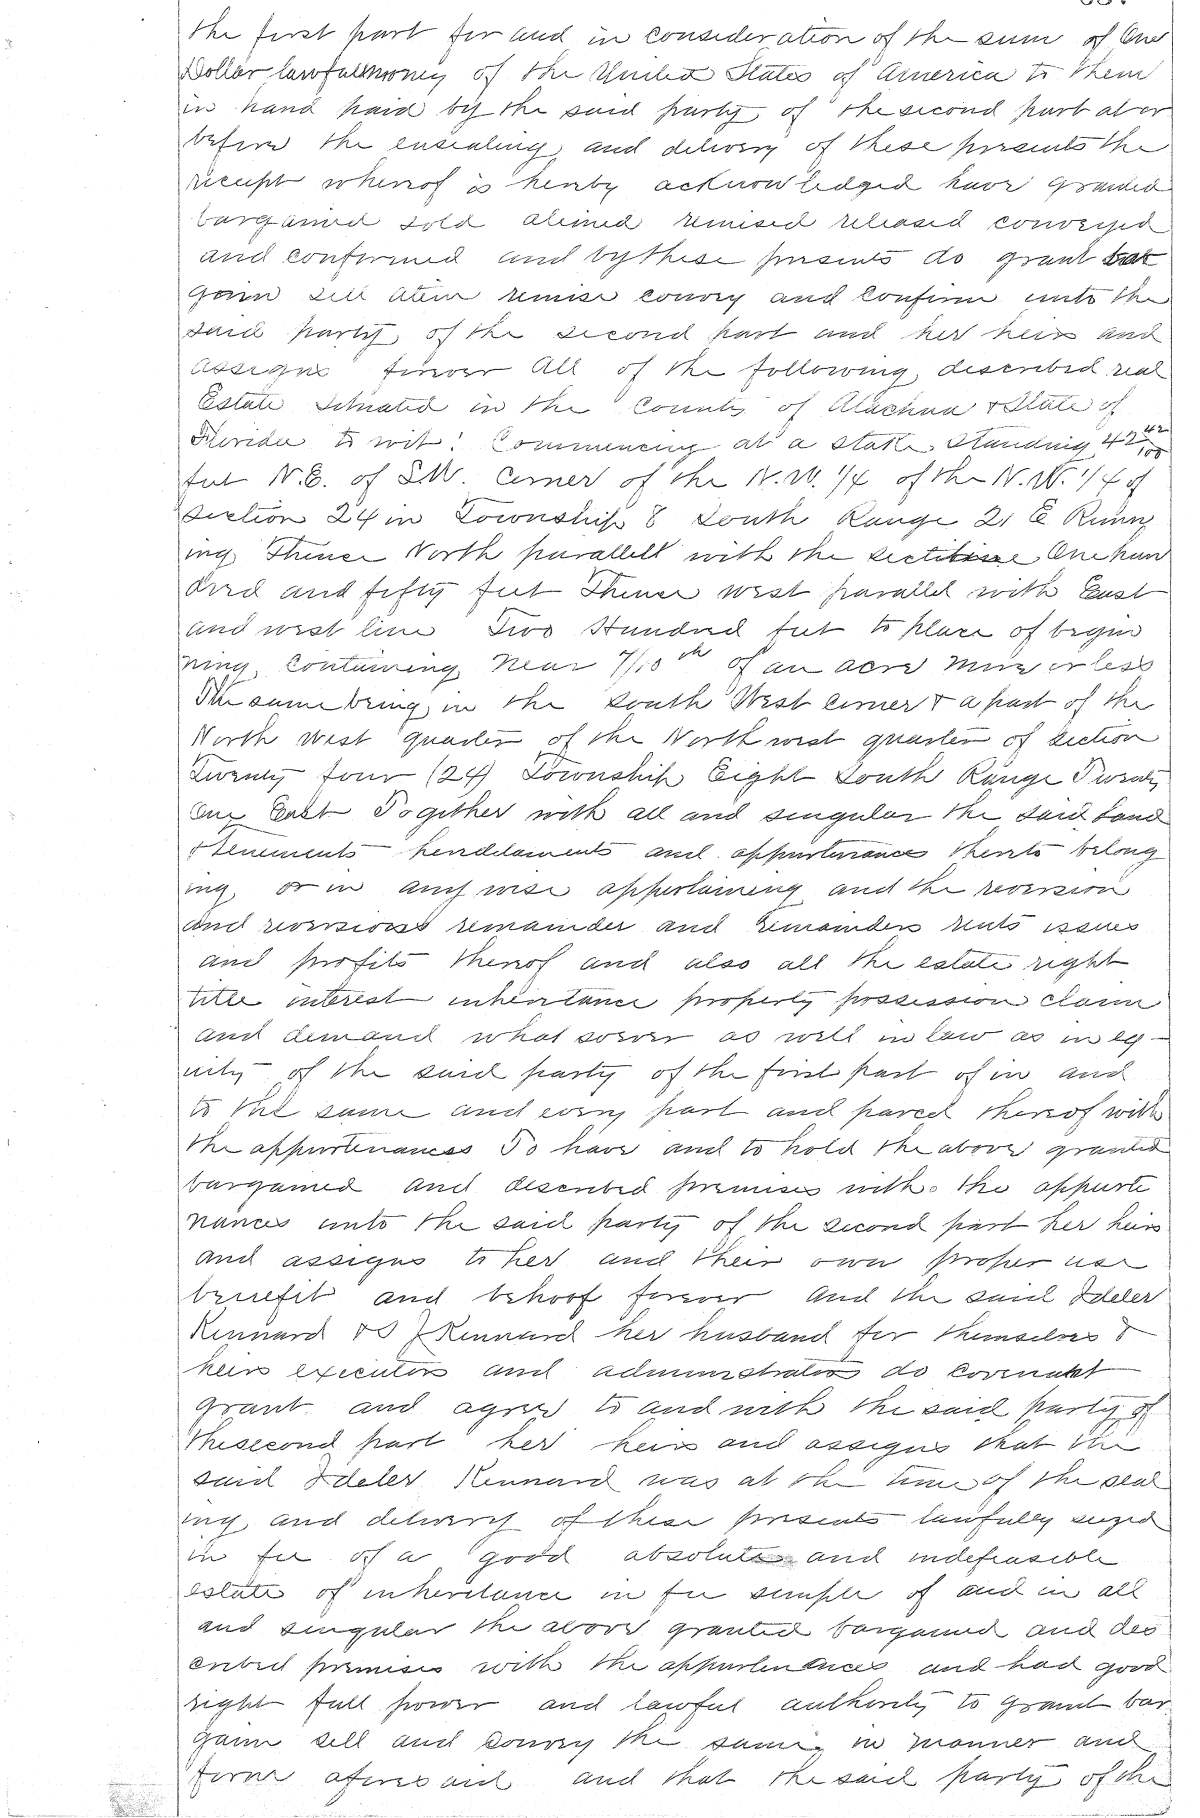 the first part for and in consideration of the sum of One
Dollar lawful money of the United States of America to them
in hand paid by the said party of the second part at or
before the ensealing and delivery of these presents the
receipt whereof is hereby acknowledged have granted
bargained sold aliened remised released conveyed
and confirmed and by these presents do grant bar
gain sell alien remise convey and confirm unto the
said party of the second part and her heirs and
assigns forever All of the following described real
Estate situated in the County of Alachua & State of
Florida to wit: Commencing at a stake standing 42 42/100
feet N.E. of S.W. corner of the N.W. 1/4 of the N.W. 1/4 of
section 24 in Township 8 South Range 21 E Runn
ing Thence North parallell with the section line One hun
dred and fifty feet Thense west parallel with East
and west line Two Hundred feet to place of begin
ning, Containing Near 7/10th of an acre more or less
The same being in the South West corner & a part of the
North west quarter of the North west quarter of Section
Twenty four (24) Township Eight South Range Twenty
One East Together with all and singular the said Land
tenements hereditaments and appurtenances thereto belong
ing or in any wise appertaining and the reversion
and reversions remainder and remainders rents issues
and profits thereof and also all the estate right
title interest inheritance property possession claim
and demand what soever as well in law as in eq-
uity of the said party of the first part of in and
to the same and every part and parcel thereof with
the appurtenances To have and to hold the above granted
bargained and described premises with the appurte
nances unto the said party of the second part her heirs
and assigns to her and their own proper use
benefit and behoof forever And the said Ideler
Kennard & S J Kennard her husband for themselves &
heirs executors and administrators do covenant
grant and agree to and with the said party of
the second part her heirs and assigns that the
said Ideler Kennard was at the time of the seal
ing and delivery of these presents lawfully seized
in fee of a good absolute and indefeasible
estate of inheritance in fee simple of and in all
and singular the above granted bargained and des
cribed premises with the appurtenances and had good
right full power and lawful authority to grant bar
gain sell and convey the same in manner and
form aforesaid and that the said party of the